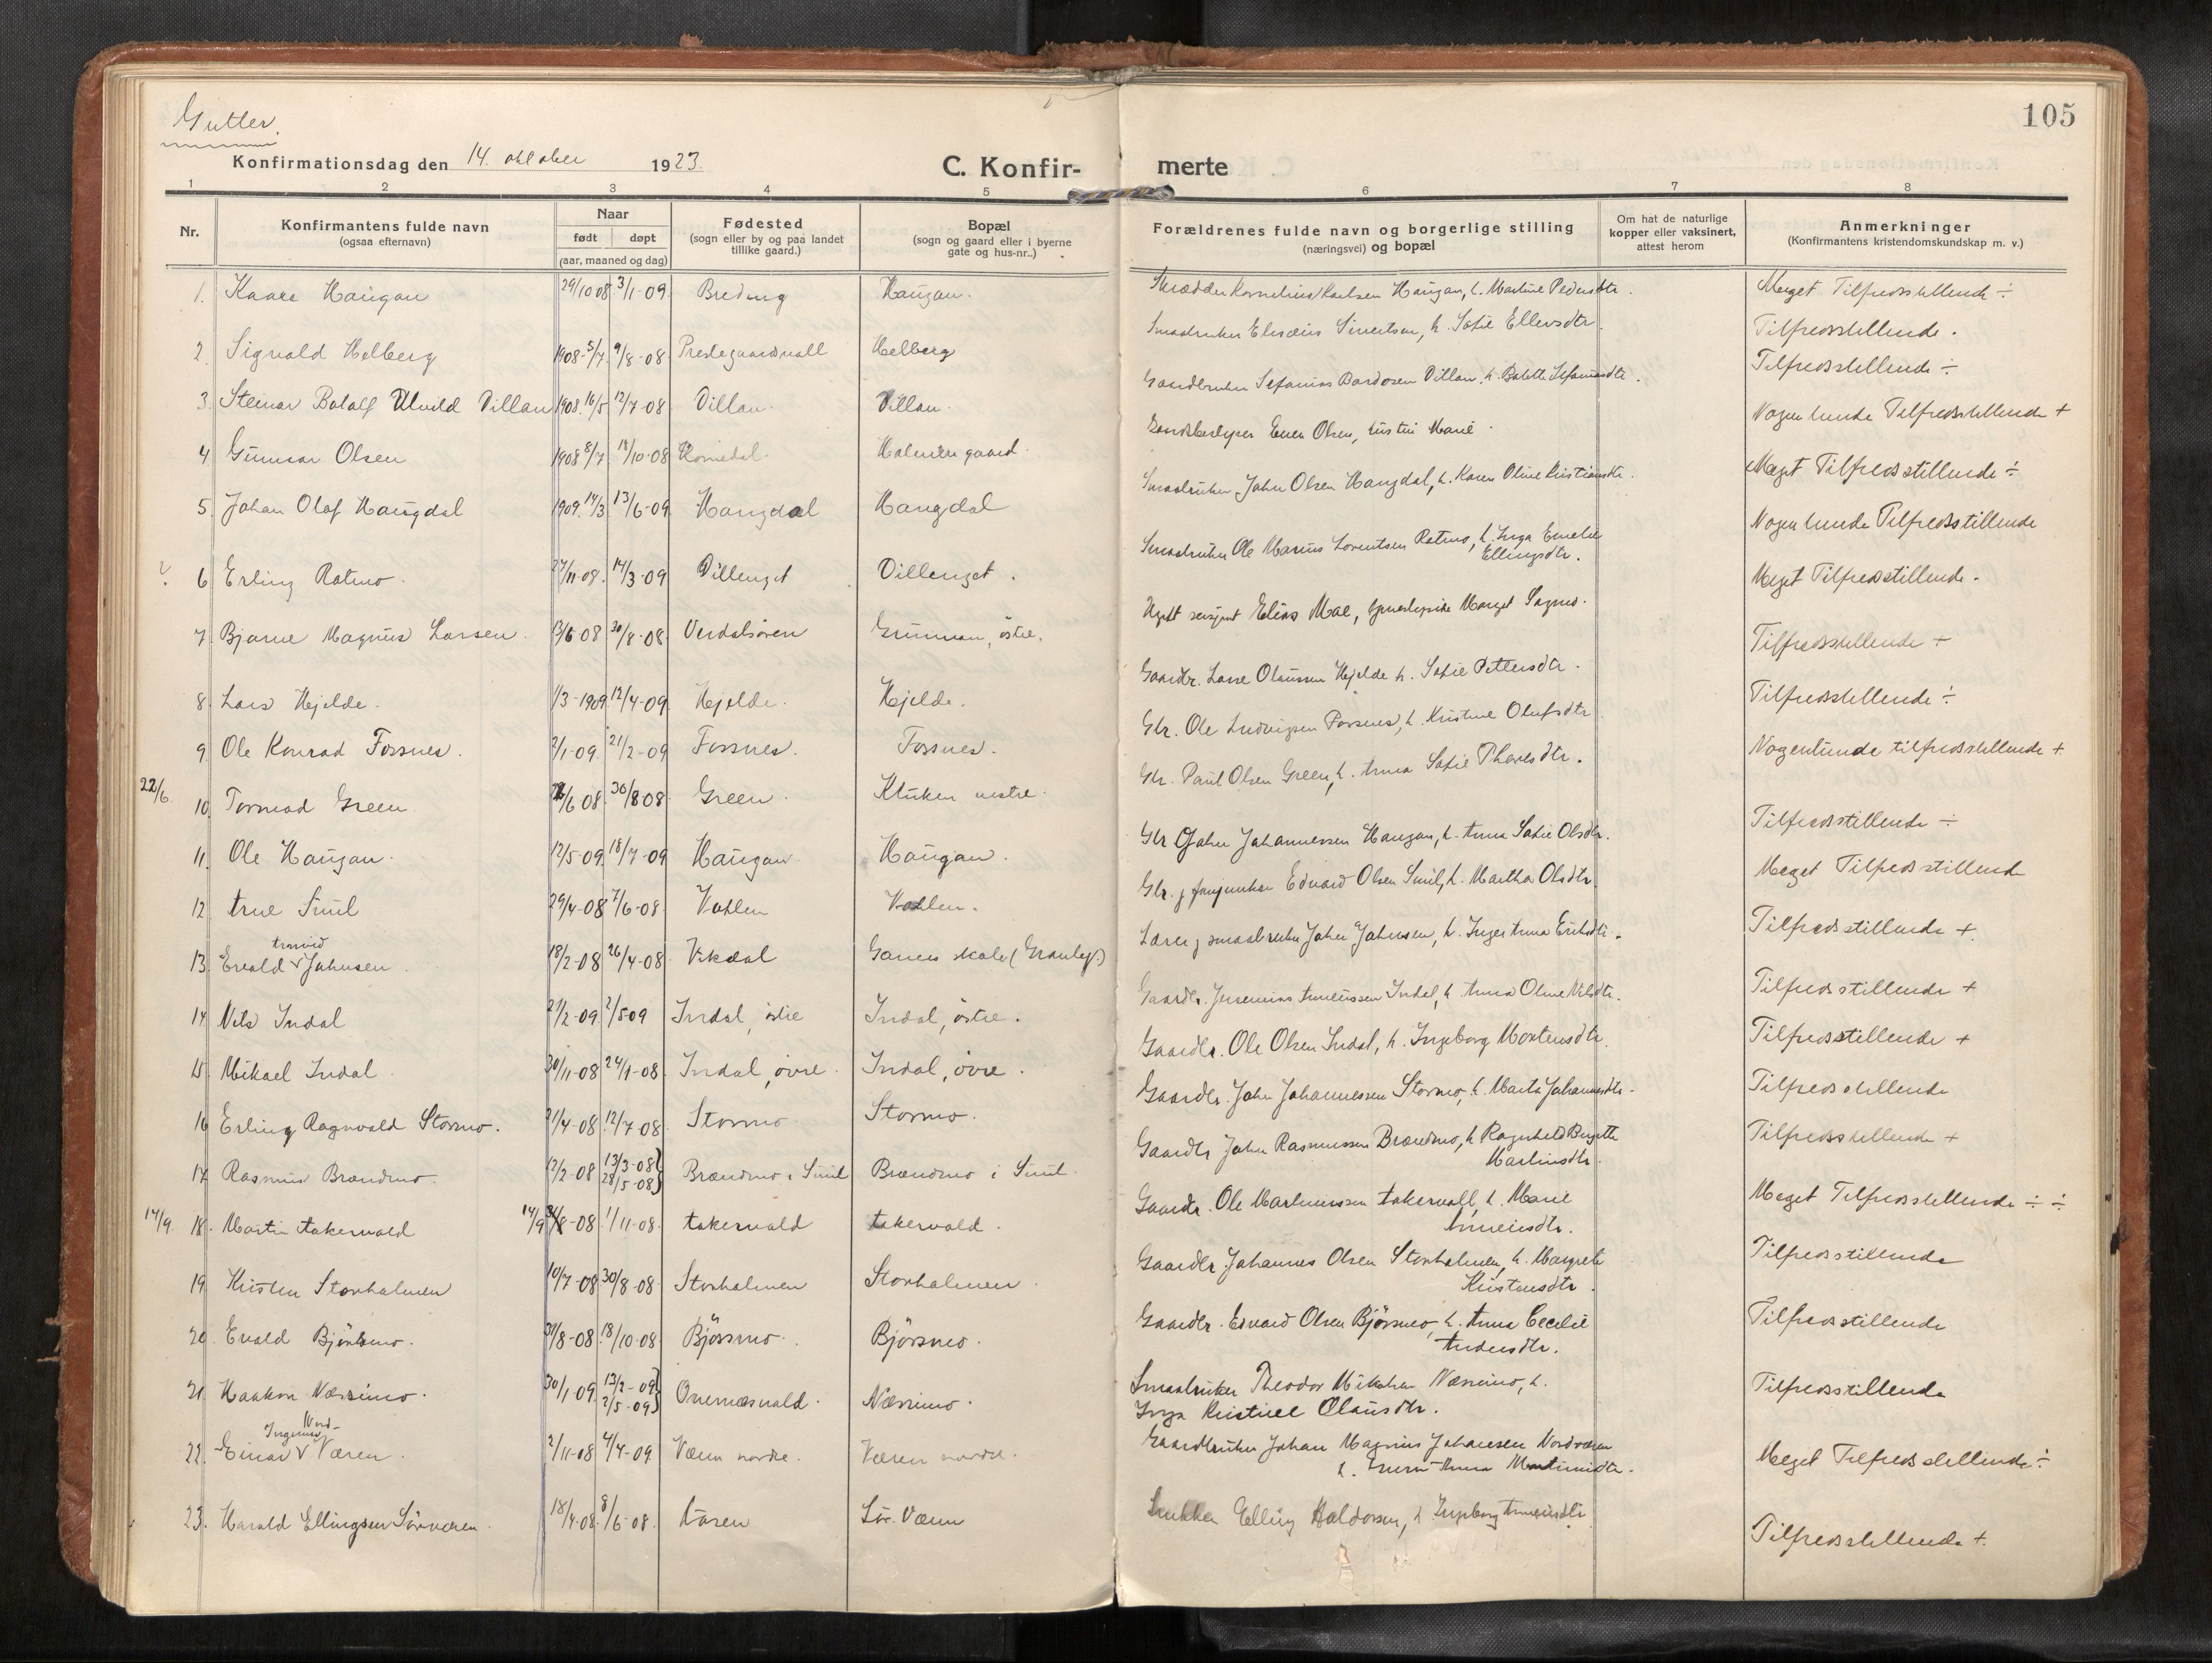 Gutter.
105
Konfirmationsdag den 14. oktober 1923.
C. Konfir-
merte
1 2 3 4 5 6 7 8
Nr.
Konfirmantens fulde navn
(ogsaa efternavn)
Naar
født døpt
(aar, maaned og dag)
Fødested
(sogn eller by og paa landet
tillike gaard.)
Bopæl
(sogn og gaard eller i byerne
gate og hus-nr..)
Forældrenes fulde navn og borgerlige stilling
(næringsvei) og bopæl
Om hat de naturlige
kopper eller vaksinert,
attest herom
Anmerkninger
(Konfirmantens kristendomskundskap m. v.)
1. Kaare Haugan 29/10 08 3/1-09 Haugan. Skrædder Kornelius Karlsen Haugan, h. Martine Pedersdtr. Meget Tilfredsstillende ÷
2. Sigvald Helberg 1908-5/7 9/8-08 Helberg Smaabruker Eliseus Sivertsen, h. Sofie Ellevsdtr. Tilfredsstillende.
3. Steinar Botolf Villan 1908. 16/5 12/7-08 Villan. Villan. Gaardbruker Sefanias Bardosen Villan, h. Tilfredsstillende ÷
4 Gunnar Olsen 1908 8/7 18/10-08 Gaardbestyrer Even Olsen, hustru Marie. Nogenlunde Tilfredsstillende +
5. Johan Olaf Haugdal 1909. 14/3 13/6-09 Haugdal Haugdal Smaabruker John Olsen Haugdal, h. Karen Oline Kristiansdtr. Meget Tilfredsstillende ÷
6 Erling Rotmo. 27/11-08. 14/3-09 Villenget Villenget. Smaabruker Ole Marius Lorentsen Rotmo, h. Inga Emelie
Ellingsdtr.
Nogenlunde Tilfredsstillende
7. Bjarne Magnus Larsen. 13/6 08 30/8-08 Verdalsøren østre. Elias Moe, Meget Tilfredsstillende.
8. Lars Hjelde. 1/3-1909 12/4-09 Hjelde. Hjelde. Gaardbr. Lasse Olaussen Hjelde h. Sofie Pettersdtr. Tilfredsstillende +
9. Ole Konrad Fossnes. 2/1-09 21/2-09 Fossnes. Fossnes. Gbr. Ole Ludvigsen Fossnes, h. Kristine Olufsdtr Tilfredsstillende ÷
22/6 10. Tormod Green. 30/8 08 Green. Kluken vestre. Gbr. Paul Olsen Green, h. Anna Sofie Nogenlunde tilfredsstillende +
11. Ole Haugan. 12/5-09. 18/7-09 Haugan. Haugan. Gbr John Johannessen Haugan, h. Anna Sofie Olsdtr. Tilfredsstillende ÷
12. Arne Suul 29/4-08 7/6-08 Vohlen Vohlen. Gbr. Edvard Olsen Suul, h. Martha Olsdtr. Meget Tilfredsstillende
13. Evald v Johnsen. 18/2-08 26/4-08 Vikdal Garnes skole Lærer smaabruker John Johnsen, h. Inger Anna Tilfredsstillende +
14. Nils Indal 21/2-09 2/5 09 Indal, østre Indal, østre. Gaardbr. Jeremias Arneussen Indal, h. Anna Oline Nilsdtr. Tilfredsstillende +
15. Mikael Indal 30/11-08 Indal, øvre. Indal, øvre. Gaardbr. Ole Olsen Indal, h. Ingeborg Mortensdtr. Tilfredsstillende +
16 Erling Ragnvald Stormo. 21/4-08 12/7-08 Stormo Stormo. Gaardbr. John Johannessen Stormo, h. Marta Johannesdtr. Tilfredsstillende
17. Rasmus Brændmo. 12/2-08 13/3-08
28/5-08 Brændmo i Suul Brændmo i Suul. Gaardbr John Rasmussen Brændmo, h. Ragnhild Bergitte
Martinsdtr.
Tilfredsstillende +
14/9 18. Martin Aakervold 14/9 1/11-08. Aakervold Aakervold. Gaardbr. Ole Martinussen Aakervoll, h. Marie
Arneusdtr.
Meget Tilfredsstillende ÷ ÷
19. Kristen Storholmen 10/7-08 30/8-08 Storholmen Storholmen. Gaardbr. Johannes Olsen Storholmen, h. Margrete
Kristensdtr.
Tilfredsstillende
20. Evald 18/10-08 Bjørsmo. Bjørsmo. Gaardbr. Edvard Olsen Bjørsmo, h. Anna Cecilie
Andersdtr.
Tilfredsstillende
21. Haakon Næssmo. 30/1 09. 13/2-09
2/5-09 Næssmo. Smaabruker Theodor Mikalsen Næssmo, h.
Inga Olausdtr.
Tilfredsstillende
22. Einar v Væren. 2/11-08 4/4-09 Væren nordre. Væren nordre. Gaardbruker Johan Magnus Johansen Nordværen
h. Anna
Meget Tilfredsstillende ÷
23. Harald Ellingsen Sørværen. 18/4-08. 8/6-08. Aasen Sør. Væren Elling Haldorsen, h. Ingeborg Arneusdtr Tilfredsstillende +.